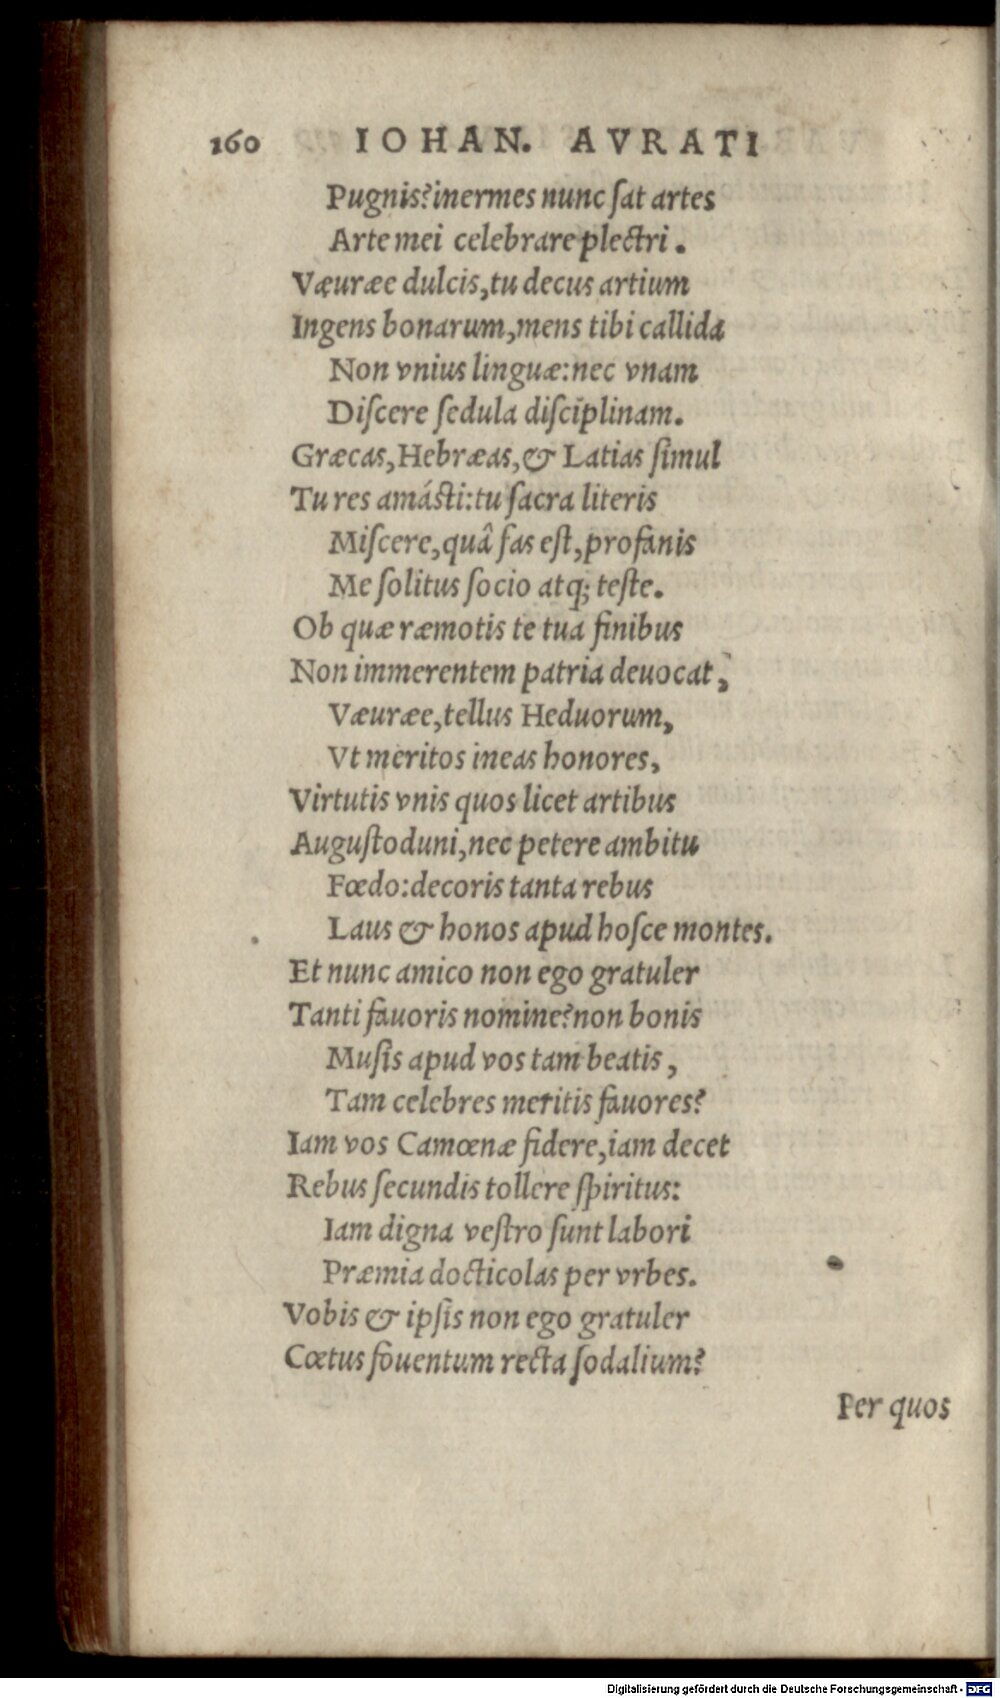 160 IOHAN. AVRATI
Pugnis? inermes nunc ſat artes
Arte mei celebrare plectri.
Væuræe dulcis, tu decus artium
Ingens bonarum, mens tibi callida
Non vnius linguæ: nec vnam
Diſcere ſedula diſciplinam.
Græcas, Hebræas, & Latias ſimul
Tu res amáſti: tu ſacra literis
Miſcere, quâ fas eſt, profanis
Me ſolitus ſocio atq; teſte.
Ob quæ ræmotis te tua finibus
Non immerentem patria deuocat,
Væuræe, tellus Heduorum,
Vt meritos ineas honores,
Virtutis vnis quos licet artibus
Auguſtoduni, nec petere ambitu
Fœdo: decoris tanta rebus
Laus & honos apud hoſce montes.
Et nunc amico non ego gratuler
Tanti fauoris nomine? non bonis
Muſis apud vos tam beatis,
Tam celebres meritis fauores?
Iam vos Camœnæ fidere, iam decet
Rebus ſecundis tollere ſpiritus:
Iam digna veſtro ſunt labori
Præmia docticolas per vrbes.
Vobis & ipſis non ego gratuler
Cœtus fouentum recta ſodalium?
Per quos
Digitalisierung gefördert durch die Deutsche Forschungsgemeinschaft - DFG